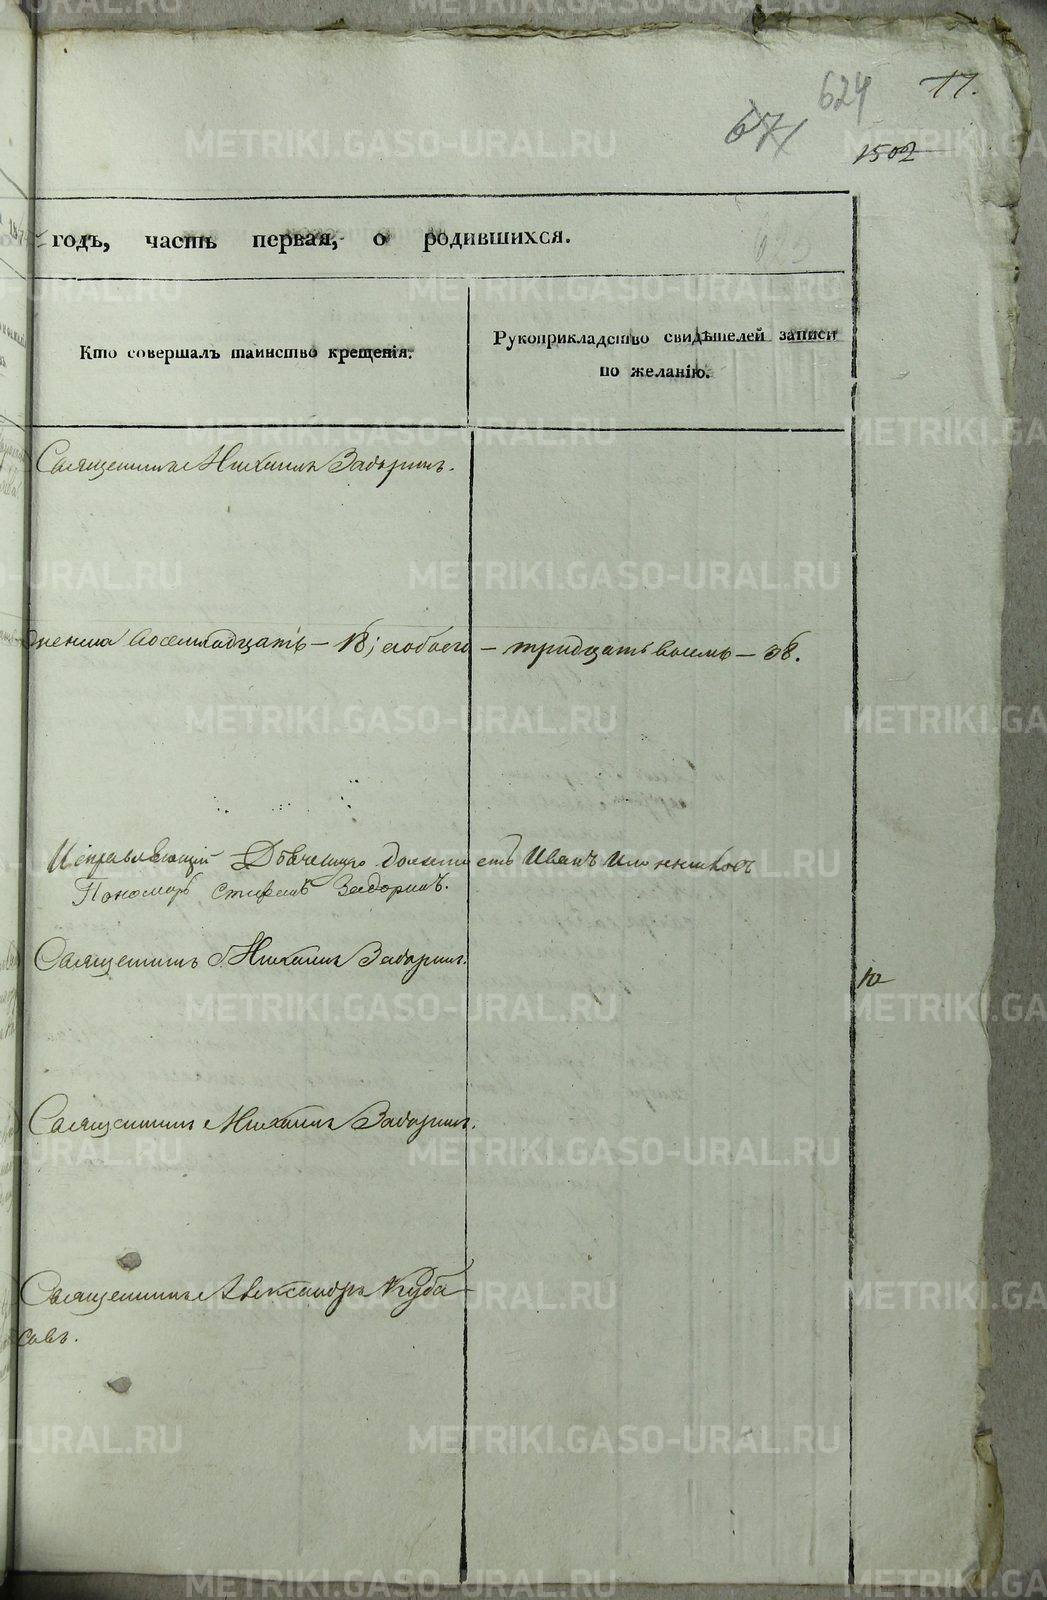 624 17.
671
1502
годъ, часть первая, о родившихся.
Кто совершалъ таинство крещенія.
Рукоприкладство свидѣтелей записи
по желанію.
Священникъ Михаилъ Задоринъ.
женска восемнадцать – 18; обоего – тридцать восемь – 38.
Исправляющій Дьячешую должность Иванъ
Пономарь Стефанъ Задоринъ.
Священникъ Михаилъ Задоринъ.
Священникъ Михаилъ Задоринъ.
Священникъ Александръ Куба
совъ.
METRIKI.GASO-URAL.RU